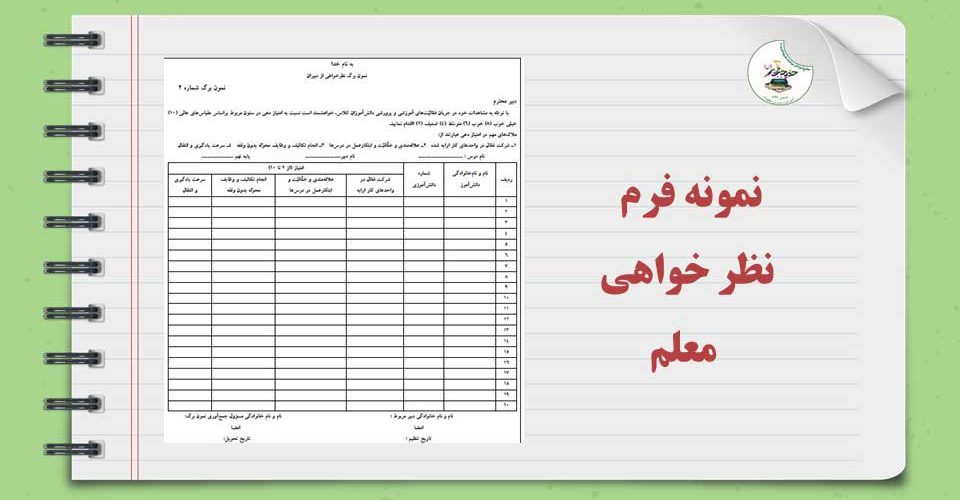 نمونه فرم
نظر خواهی
معلم
به نام خدا
نمون برگ نظرخواهی از دبیران
نمون برگ شماره ۲
دبیر محترم
با توجه به مشاهدات خود در جریان فعّالیّت‌های آموزشی و پرورشی دانش‌آموزان کلاس، خواهشمند است نسبت به امتیاز دهی در ستون مربوط براساس مقیاس‌های عالی (۱۰)
خیلی خوب (۸) خوب (۶) متوسّط (۴) ضعیف (۲) اقدام نمایید.
ملاک‌های مهم در امتیاز دهی عبارتند از:
۱ـ شرکت فعّال در واحدهای کار ارایه شده ۲ـ علاقه‌مندی و خلّاقیّت و ابتکارعمل در درس‌ها ۳ـ انجام تکالیف و وظایف محوّله بدون وقفه سرعت یادگیری و انتقال
نام درس : نام دبیر: پایه نهم
ردیف نام و نام‌خانوادگی دانش‌آموز شماره دانش‌آموزی امتیاز (از ۲ تا ۱۰)
شرکت فعّال در واحدهای کار ارایه علاقه‌مندی و خلّاقیّت و ابتکارعمل در درس‌ها انجام تکالیف و وظایف محوّله بدون وقفه سرعت یادگیری و انتقال
۱
۲
۳
۴
۵
۶
۷
۸
۹
۱۰
۱۱
۱۲
۱۳
۱۴
۱۵
۱۶
۱۷
۱۸
۱۹
۲۰
نام و نام خانوادگی دبیر مربوط : نام و نام خانوادگی مسؤول جمع‌آوری نمون برگ:
امضا امضا
تاریخ تنظیم : تاریخ تحویل: